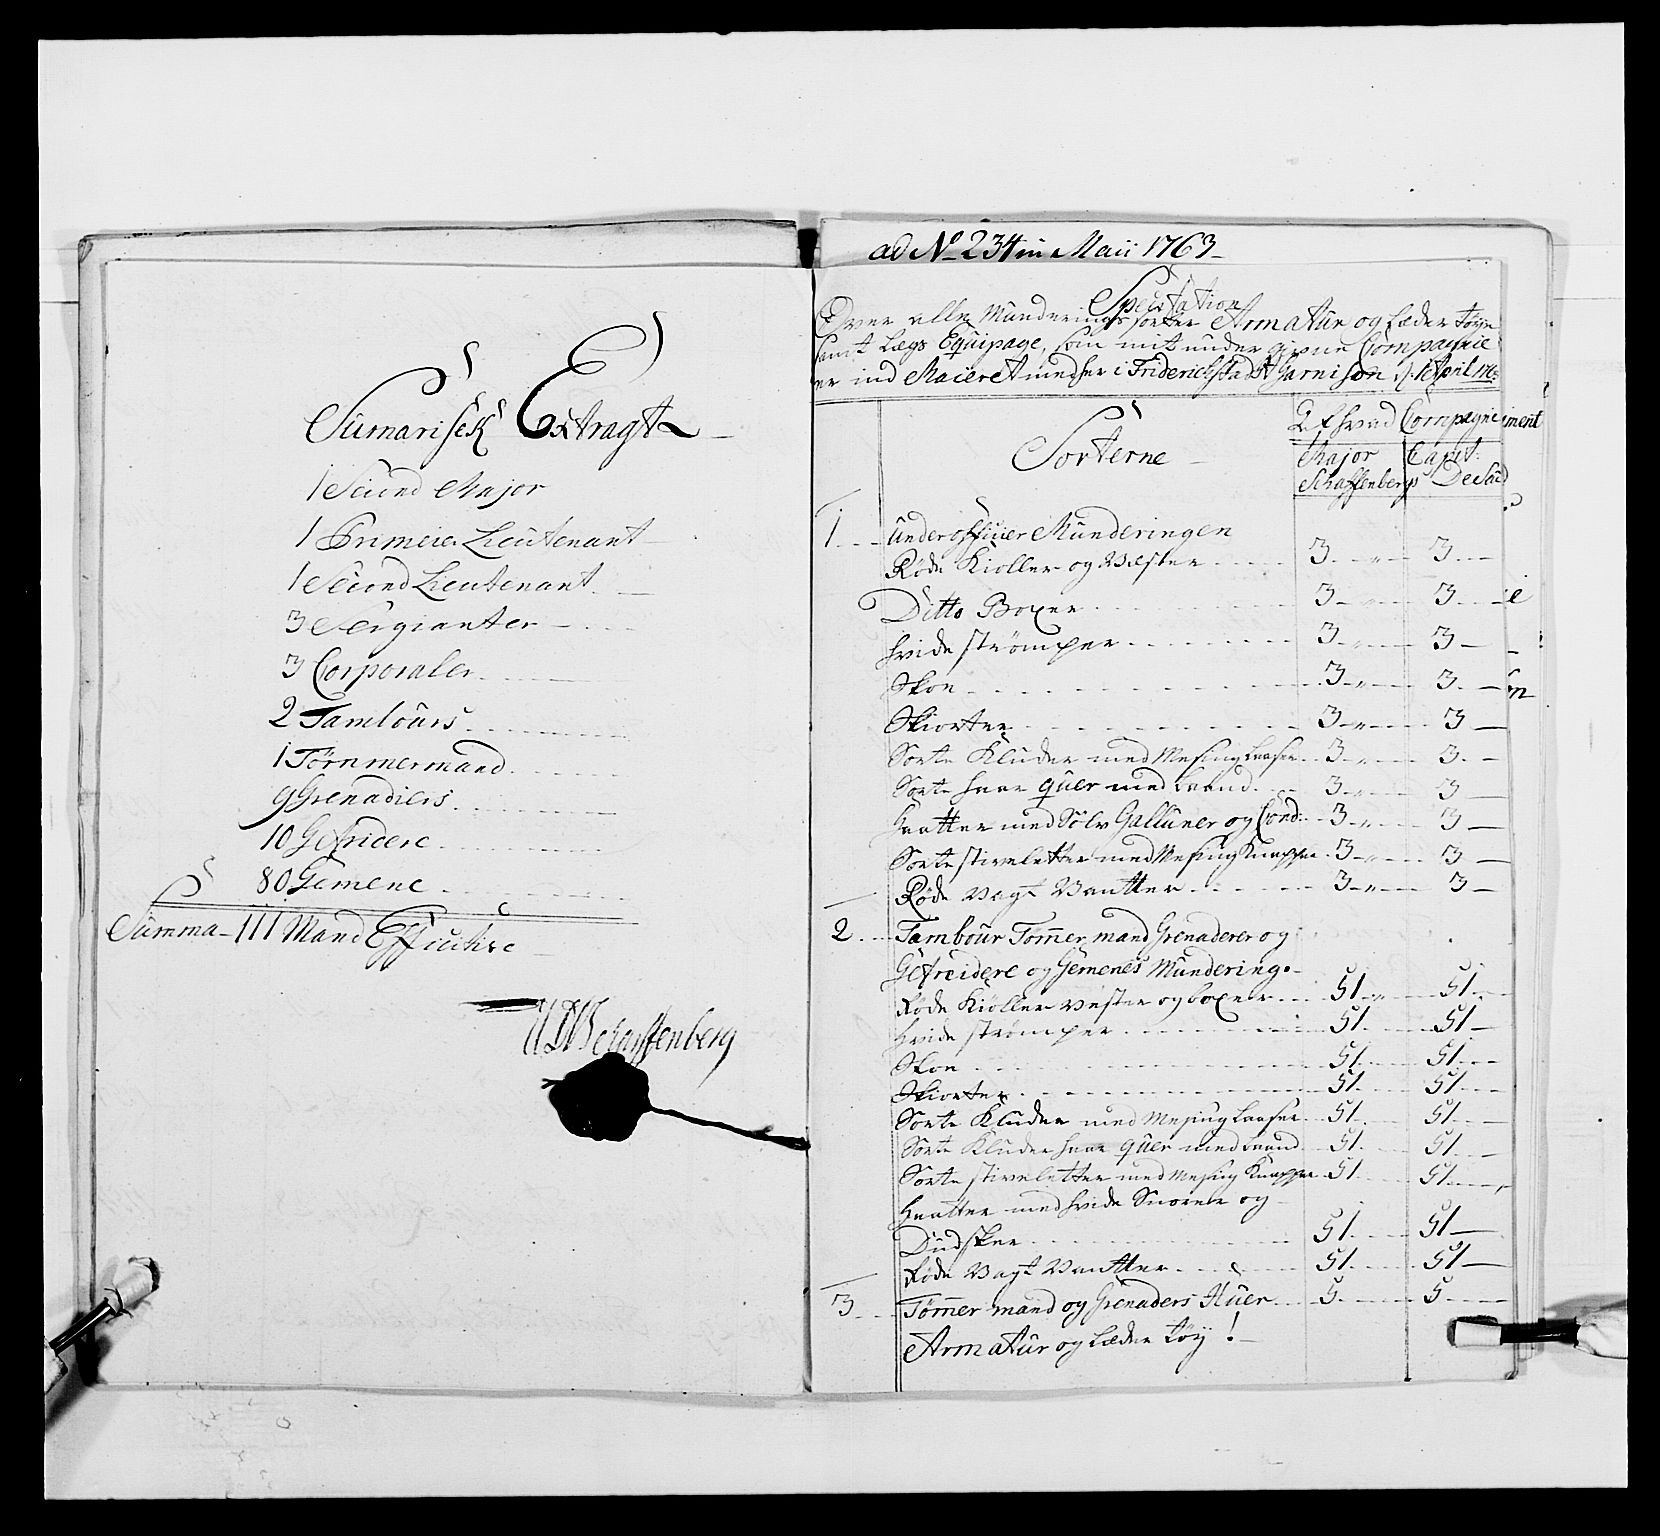 Sumarisck Extragt
1 Second Major
1 Primeier Lieutenant
1 Second Lieutenant
3 Sergianter
3 Corporaler
2 Tambours
1 Tømmermand
9 Grenadiers
10 Gefridere
80 Gemene
Summa 111 Mand Effective
Schaffenberg
ad No 234 in Maii 1763
Specification
Over alle Munderings sorter Armatur og Læder tøyer
samt Lægs Equipage, som mit under givne Compagnie
er ind Maieret med her i Friderichstad Garnison d. 1 April
Sorterne
Af hvad Compagnie
Major Schaffenbergs
Capit: De Süd
1 Underofficier Munderingen
Røde Kioller og Vester 3 3
Ditto Boxer 3 3
hvide strømper 3 3
Skoe 3 3
Skiorter 3 3
Sorte Kluder med Messing Laaser 3 3
Sorte haar quer med baand 3 3
Hatter med Sølv Galluner og Cond: 3 3
Sorte stiveletter med Messing Knapper 3 3
Røde Vagt Vantter 3 3
2 Tambour Tømmermand Grenaderer og
Gefreidere og Gemenes Mundering
Røde Kioller vester og boxer 51 51
Hvide strømper 51 51
Skoe 51 51
Skiorter 51 51
Sorte Kluder med Messing Laaser 51 51
Sorte Kluder haar quer med baand 51 51
Sorte stiveletter med Messing Knapper 51 51
Hatter med hvide Snorer og
Dudsker 51 51
Røde Vagt Vantter 51 51
3 Tømmer mand og Grenaders Huer 5 5
Armatur og Læder tøy!